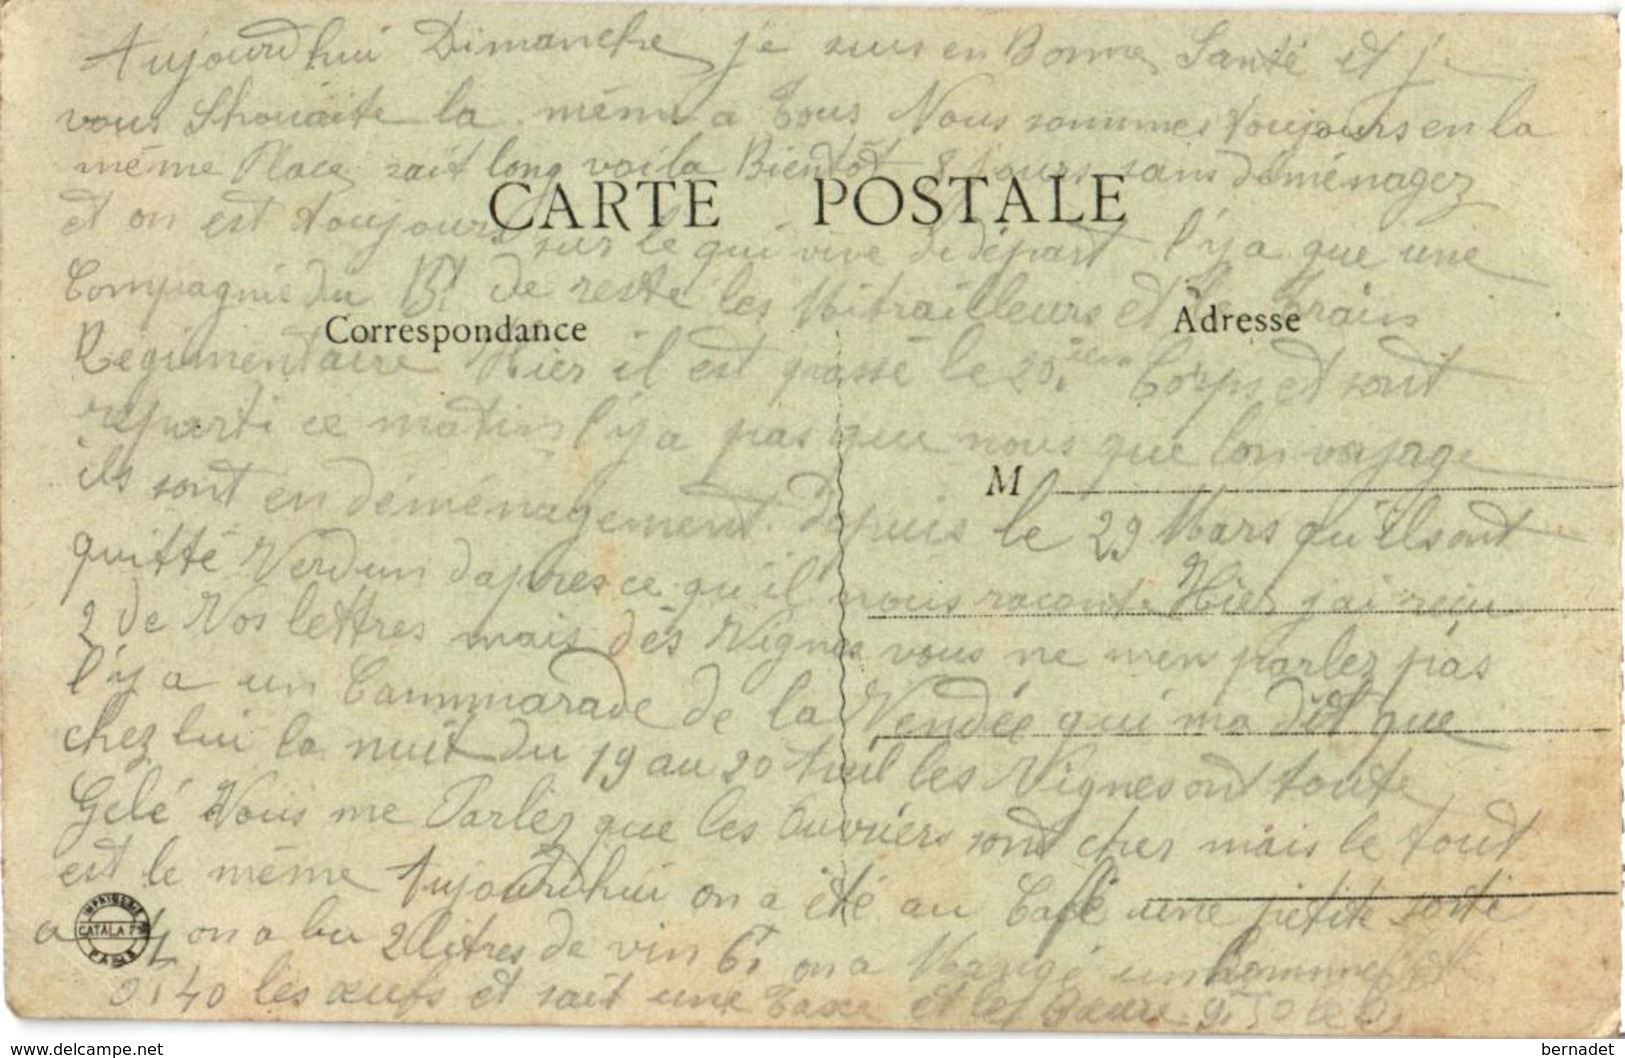 Aujourdhui Dimanche je suis en Bonne Santé et je
vous Shouaite la même a Tous Nous sommes toujours en la
même Place sait long voila Bientôt 8 Jours sans déménagez
CARTE POSTALE
et on est toujours sur le qui vive de départ l'y a que une
Compagnie du Bt de reste les Mitrailleurs et le Train
Correspondance
Adresse
Regimentaire Hier il est passé le 20. ième Corps et sont
reparti ce matin l'y a pas que nous que lon voyage
M
ils sont en déménagement depuis le 29 Mars qu'ils ont
quitté Verdun dapres ce qu'il nous racont Hier j'ai reçu
2 de Vos lettres mais dès Vignes vous ne men parlez pas
l'y a un Cammarade de la Vendée qui ma dit que
chez lui la nuit du 19 au 20 Avril les Vignes ont toute
Gelé Vous me Parlez que les Ouvriers sont cher mais le tout
est le même Aujourdhui on a été au Café une petite sorti
a 4 on a bu 2 litres de vin 6f on a Mangé un hommel et
0f40 les œufs et sait une Taxe et le Beure 9f50 le
IMPRIMERIE CATALA Fres PARIS
delcampe.net
bernadet